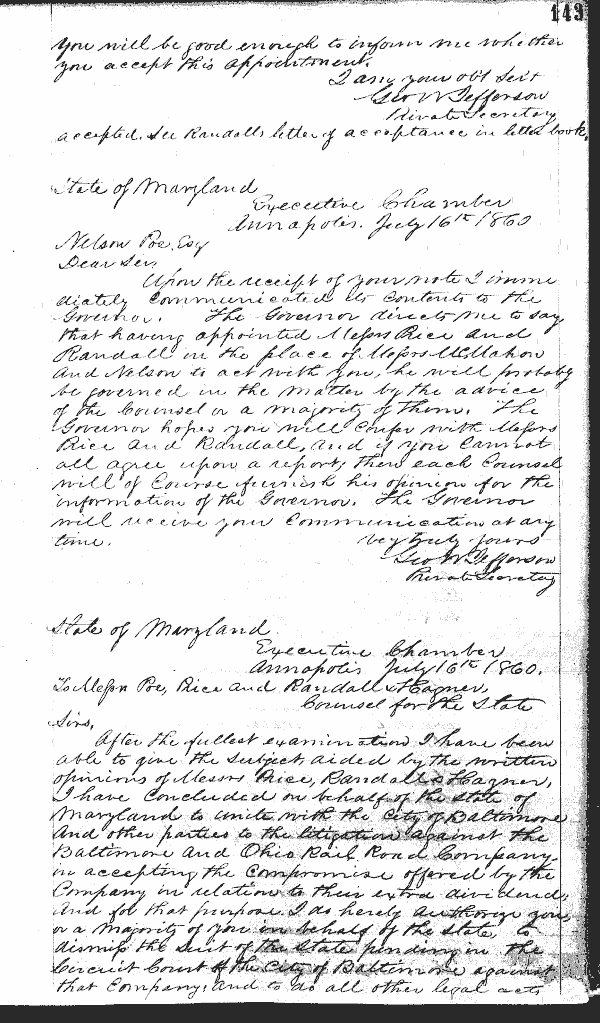 143
you will be good enough to inform me whether
you accept this appointment.
I am, your obt Sert
Geo W Jefferson
Private Secretary
accepted. See Randalls letter of acceptance in letter book.
State of Maryland
Executive Chamber
Annapolis. July 16th 1860
Nelson Poe, Esq
Dear Sir,
Upon the receipt of your note I imme
diately communicated its contents to the
Governor. The Governor directs me to say
that having appointed Messrs Rice and
Randall in the place of Messrs McMahon
and Nelson to act with you, he will probably
be governed in the matter by the advice
of the Counsel or a majority of them. The
Governor hopes you will confer with Messrs
Rice and Randall, and if you cannot
all agree upon a report, then each Counsel
will of Course furnish his opinion for the
information of the Governor. The Governor
will receive your Communication at any
time. Very truly yours
Geo W Jefferson
Private Secretary
State of Maryland
Executive Chamber
Annapolis July 16th 1860.
To Messrs Poe, Rice and Randall & Hagner,
Counsel for the State
Sirs,
After the fullest examination I have been
able to give the subject aided by the written
opinions of Messrs Price, Randall & Hagner,
I have concluded on behalf of the State of
Maryland to unite with the City of Baltimore
and other parties to the litigation against the
Baltimore and Ohio Rail Road Company.
in accepting the compromise offered by the
Company in relation to their extra dividend;
and for that purpose I do hereby authorize you
or a majority of you in behalf of the State, to
dismiss the suit of the State pending in the
Circuit Court of the City of Baltimore against
that Company; and to do all other legal acts